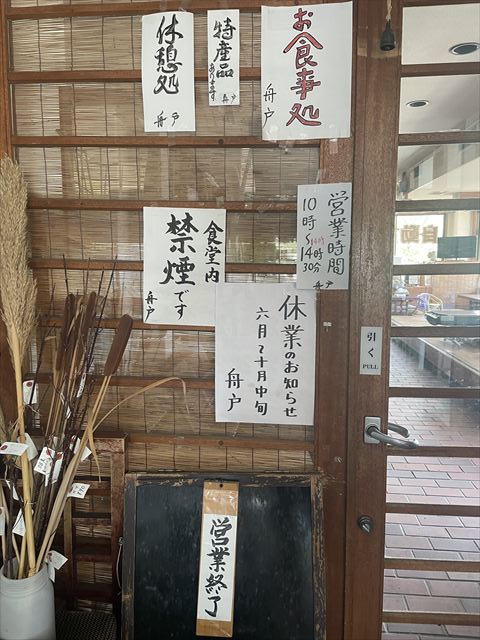 お食事処
舟戸
特産品
あります
舟戸
休憩処
舟戸
営業時間
10時
14時
〜14時
30分
舟戸
食堂内
禁煙です
舟戸
休業のお知らせ
六月〜十月中旬
舟戸
引く
PULL
営業終了